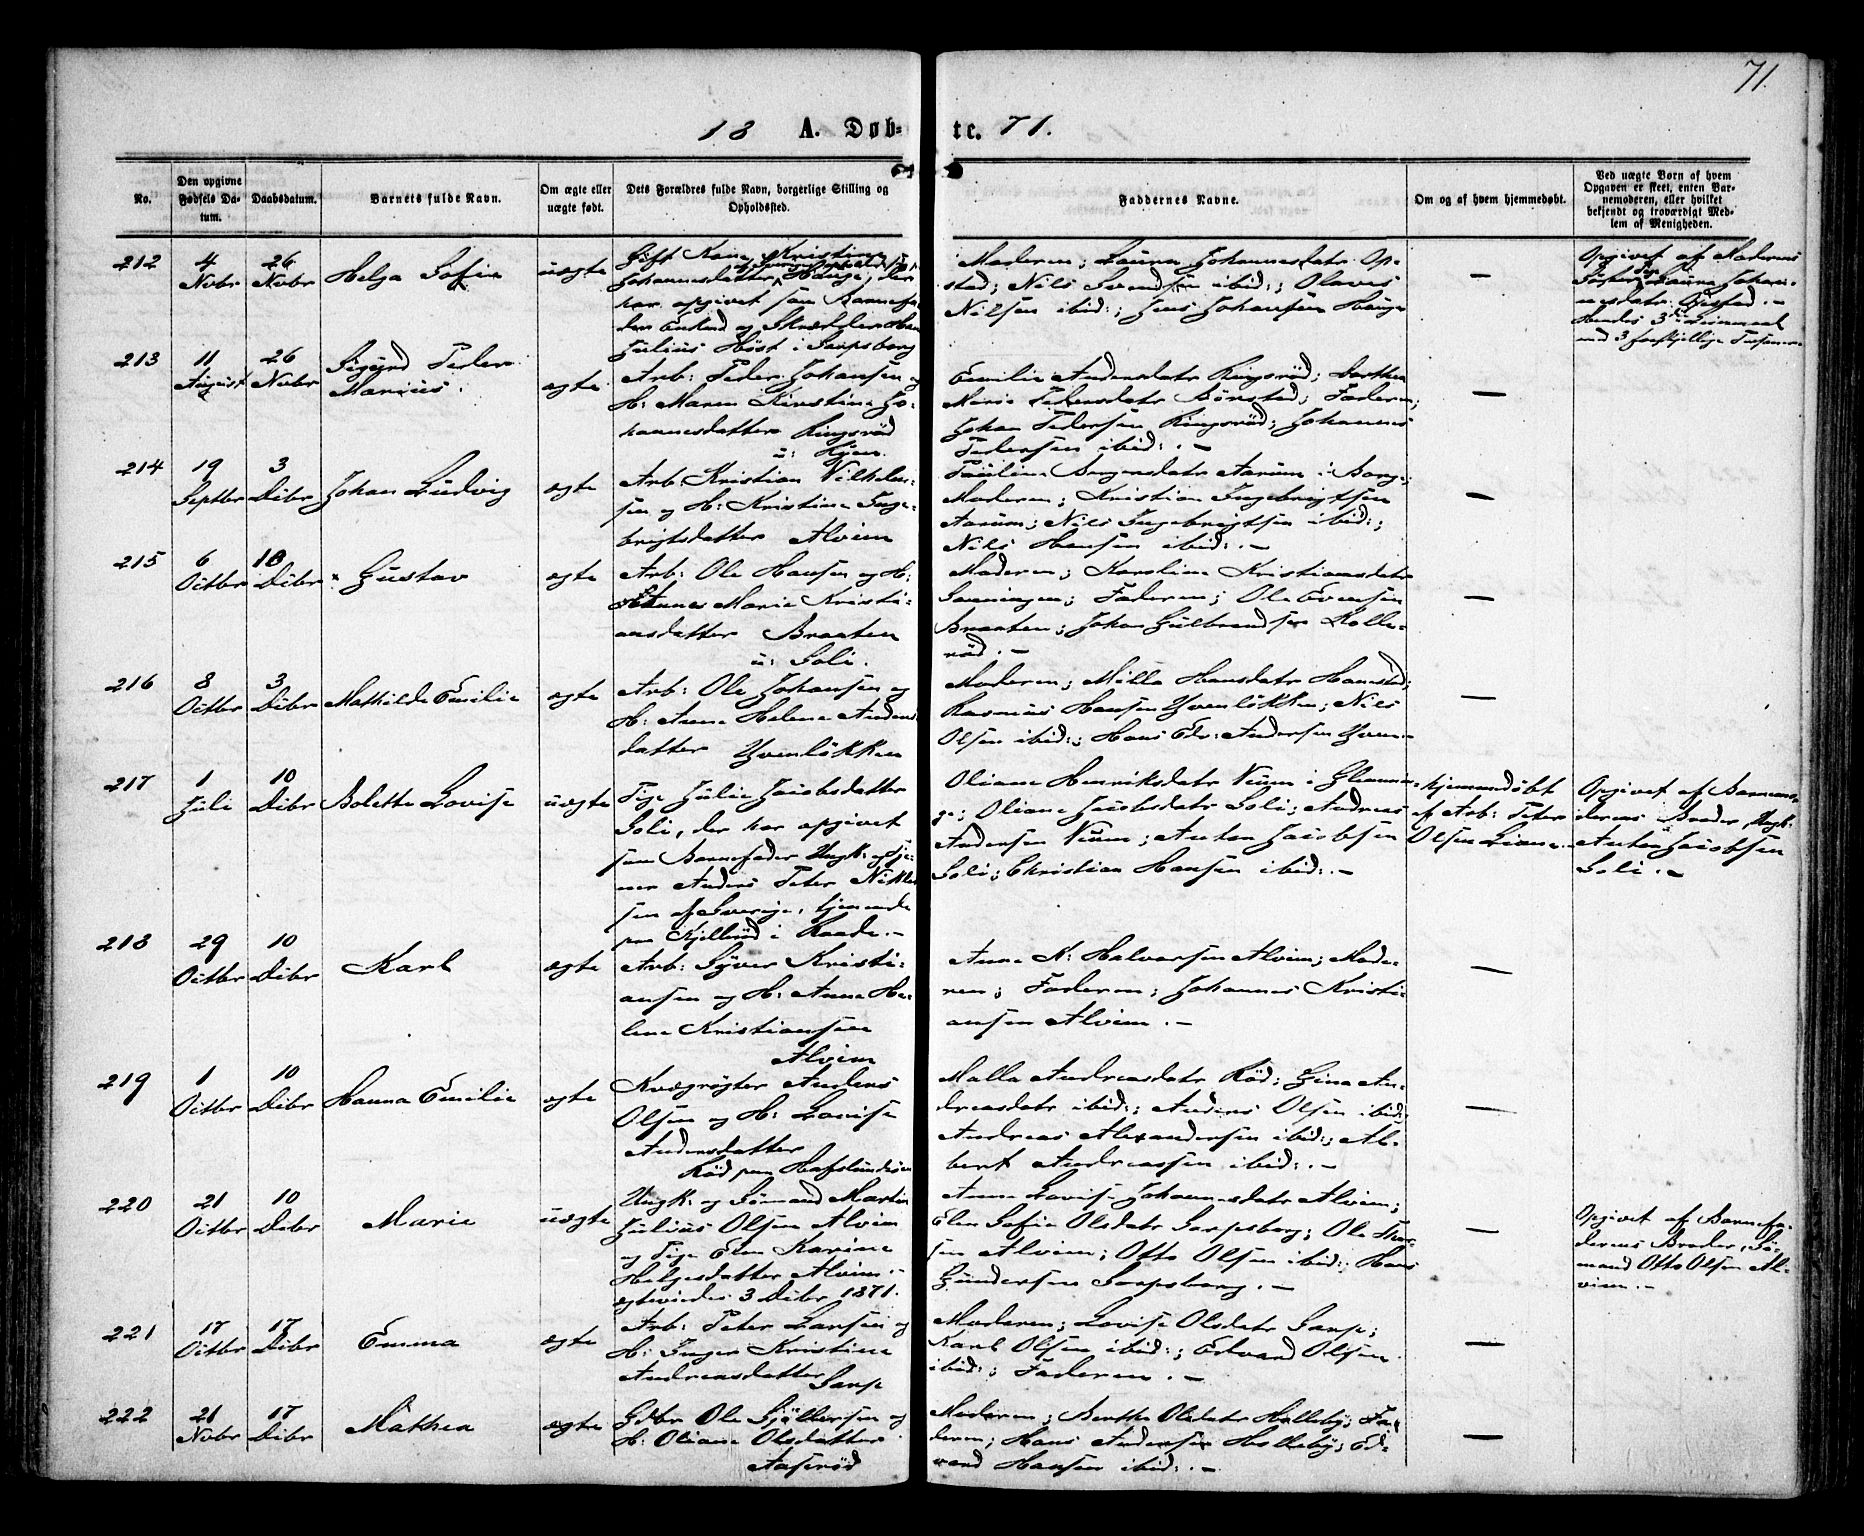 71.
18 A. Døb- te. 71.
No.
Den opgivne Fødsels Da- tum.
Daabsdatum.
Barnets fulde Navn.
Om ægte eller uægte født.
Dets Forældres fulde Navn, borgerlige Stilling og Opholdssted.
Faddernes Navne.
Om og af hvem hjemmedøbt.
Ved uægte Børn af hvem Opgaven er skeet, enten Bar- nemoderen, eller hvilket bekjendt og troværdigt Med- lem af Menigheden.
212
4 Novbr
26 Novbr
Helga Sofie
uægte
Gift Kone Kristine
Johannesdatter Hauge, der
har opgivet som Barnefa-
der Enkemd og Skrædder
Julius Høst i Sarpsborg
Moderen; Laura Johannesdatr Op-
stad; Nils Svendsen ibid:; Olaves
Nilsen ibid:; Jens Johansen Hauge
—
Opgivet af Moderens
Søster Laura Johan-
nesdatr Opstad. -
Hendes 3die Leiermaal
med 3 forskjellige
213
11 August
26 Novbr
Sigurd Peder
Marius.
ægte
Arb: Peder Johansen og
H: Maren Kirstine Jo-
hannesdatter Ringsrød
u: Hjem.
Emilie Andersdatr Ringsrød; Dorthea
Marie Pedersdatr Børstad; Faderen;
Johan Pedersen Ringsrød; Johannes
Pedersen ibid:. -
—
214
19 Septbr
3 Dcbr
Johan Ludvig
ægte
Arb. Kristian Vilhelm-
sen og H: Kristine Inge-
brigtsdatter Alvim
Pauline Borgersdatr Aarum i Borge;
Moderen; Kristian Ingebrigtsen
Aarum; Nils Ingebrigtsen ibid:;
Nils Hansen ibid:. -
—
215
6 Octbr
10 Dcbr
Gustav
ægte
Arb: Ole Hansen og H:
Annes Marie Kristi-
ansdatter Braaten
u: Soli.
Moderen; Karoline Kristiansdatr
Sanningen; Faderen; Ole Evensen
Braaten; Johan Gulbrandsen Kolle-
rød. -
—
216
8 Octbr
3 Dcbr
Mathilde Emilie
ægte
Arb: Ole Johansen og
H: Anne Helene Anders-
datter Yvenløkken
Moderen; Milla Hansdatr Hanestad;
Rasmus Hansen Yvenløkken; Nils
Olsen ibid:; Hans Edv: Andersen Yven-
—
217
1 Juli
10 Dcbr
Bolette Lovise
uægte
Pige Julie Jacobsdatter
Soli, der har opgivet
som Barnefader Ungk: og Tje-
ner Anders Peter Niklas-
sen af Sverige, tjenende
paa Kjillerød i Raade. -
Oliane Henriksdatr Navum i Glemmin-
ge; Oliane Jacobsdatr Soli; Andreas
Andersen Navum; Anton Jacobsen
Soli; Christian Hansen ibid:. -
Hjemmedøbt
af Arb: Peter
Olsen Liane. -
Opgivet af Barnemo-
derens Broder, Ungk:
Anton Jacobsen
Soli. -
218
29 Octbr
10 Dcbr
Karl
ægte
Arb: Syver Kristi-
ansen og H: Anne He-
lene Kristiansen
Alvim
Anne K: Halvorsen Alvim; Mode-
ren; Faderen; Johannes Kristi-
ansen Alvim. -
—
219
1 Octbr
10 Dcbr
Hanna Emilie
ægte
Kvægrøgter Anders
Olsen og H: Lovise
Andersdatter
Rød paa Hafslundsøen
Malla Andreasdatr Rød; Gina An-
dreasdatr ibid:; Anders Olsen ibid:;
Andreas Alexandersen ibid:; Al-
bert Andreassen ibid:. -
—
220
21 Octbr
10 Dcbr
Marie
uægte
Ungk: og Sømand Martin
Julius Olsen Alvim
og Pige Elen Karine
Helgesdatter Alvim. -
ægteviedes 3 Dcbr 1871.
Anne Lovise Johannesdatr Alvim;
Elen Sofie Olsdatr Sarpsborg; Ole Thor-
sen Alvim; Otto Olsen ibid:; Hans
Gundersen Sarpsborg. -
—
Opgivet af Barnefa-
derens Broder, Sø-
mand Otto Olsen Al-
vim. -
221
17 Octbr
17 Dcbr
Emma
ægte
Arb: Peter Larsen og
H: Inger Kristine
Andreasdatter
Sarp
Moderen; Lovise Olsdatr Sarp;
Karl Olsen ibid:; Edvard Olsen
ibid:; Faderen. -
—
222
21 Novbr
17 Dcbr
Mathea
ægte
Gdbr Ole Gjølbersen og
H: Oliane Olsdatter
Aaserød
Moderen; Berthe Olsdatr Halleby; Fa-
deren; Hans Andersen Halleby; Ed-
vard Hansen ibid:. -
—